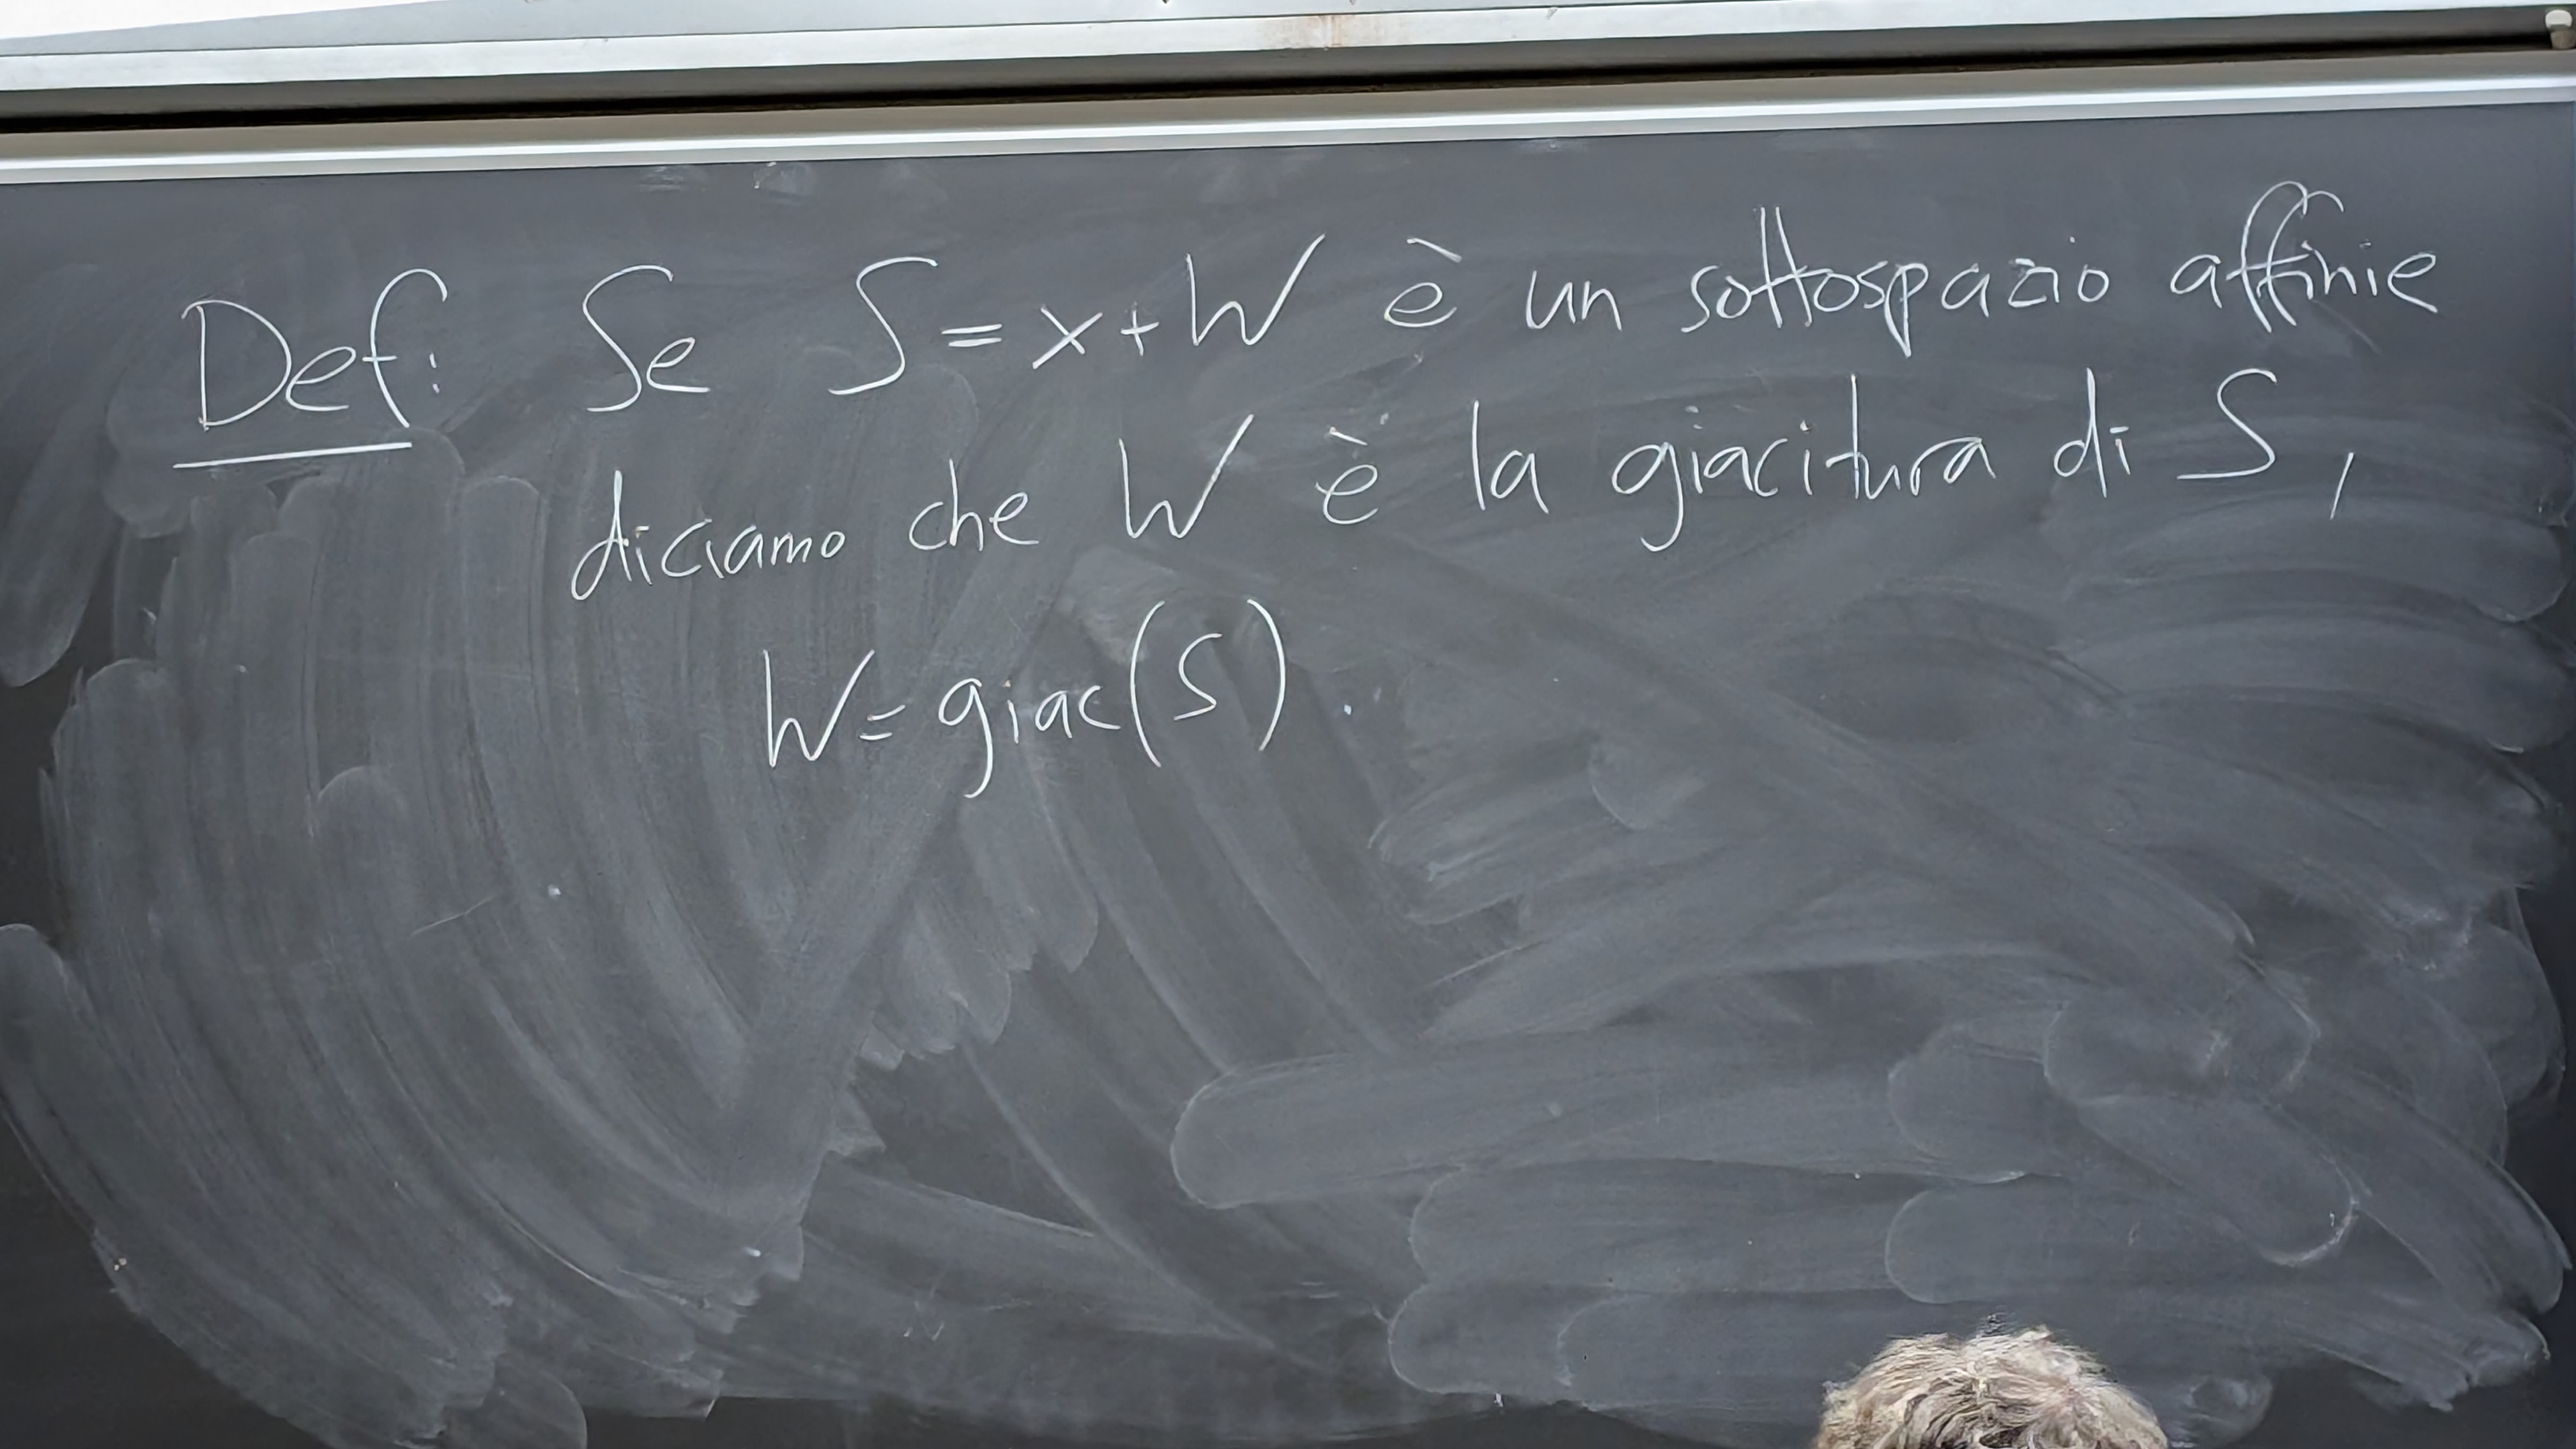 Def: Se S = x + W è un sottospazio affinie
diciamo che W è la giacitura di S,
W = giac(S).